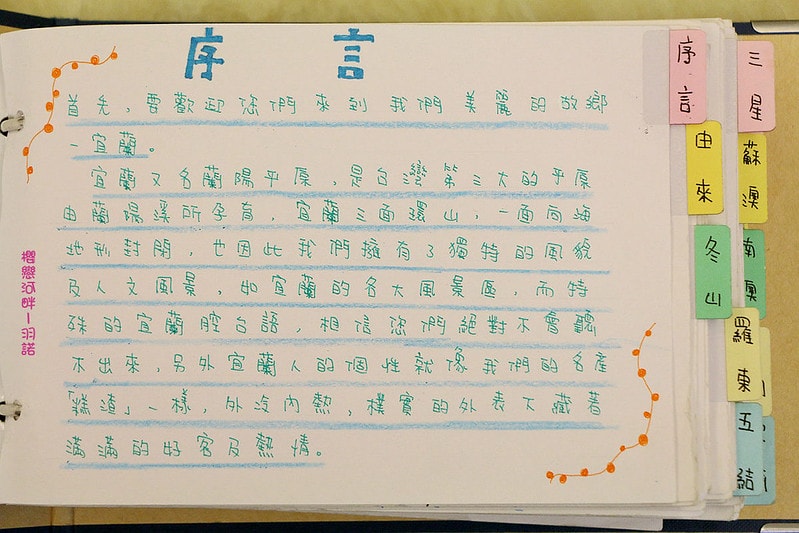 序言
首先,要歡迎您們來到我們美麗的故鄉
-宜蘭。
宜蘭又名蘭陽平原,是台灣第三大的平原
由蘭陽溪所孕育,宜蘭三面環山,一面向海
地形封閉,也因此我們擁有了獨特的風貌
及人文風景,如宜蘭的各大風景區,而特
殊的宜蘭腔台語,相信您們絕對不會聽
不出來,另外宜蘭人的個性就像我們的名產
「糕渣」一樣,外冷內熱,樸實的外表下藏著
滿滿的好客及熱情。
櫻戀河畔-羽諾
序言
由來
冬山
羅東
五結
三星
蘇澳
南澳